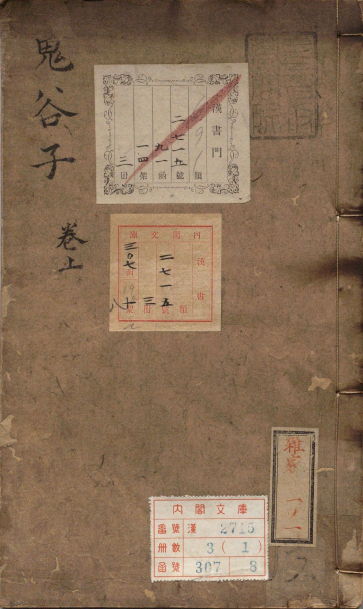 鬼谷子
卷上
漢書門
類
二七一五
號
九一
函
一四
架
三
冊
內閣文庫
漢書
二七一五
號
三
冊
三〇七
函
十八
架
雜家
內閣文庫
番號 漢 2715
冊數 3(1)
函號 307 8